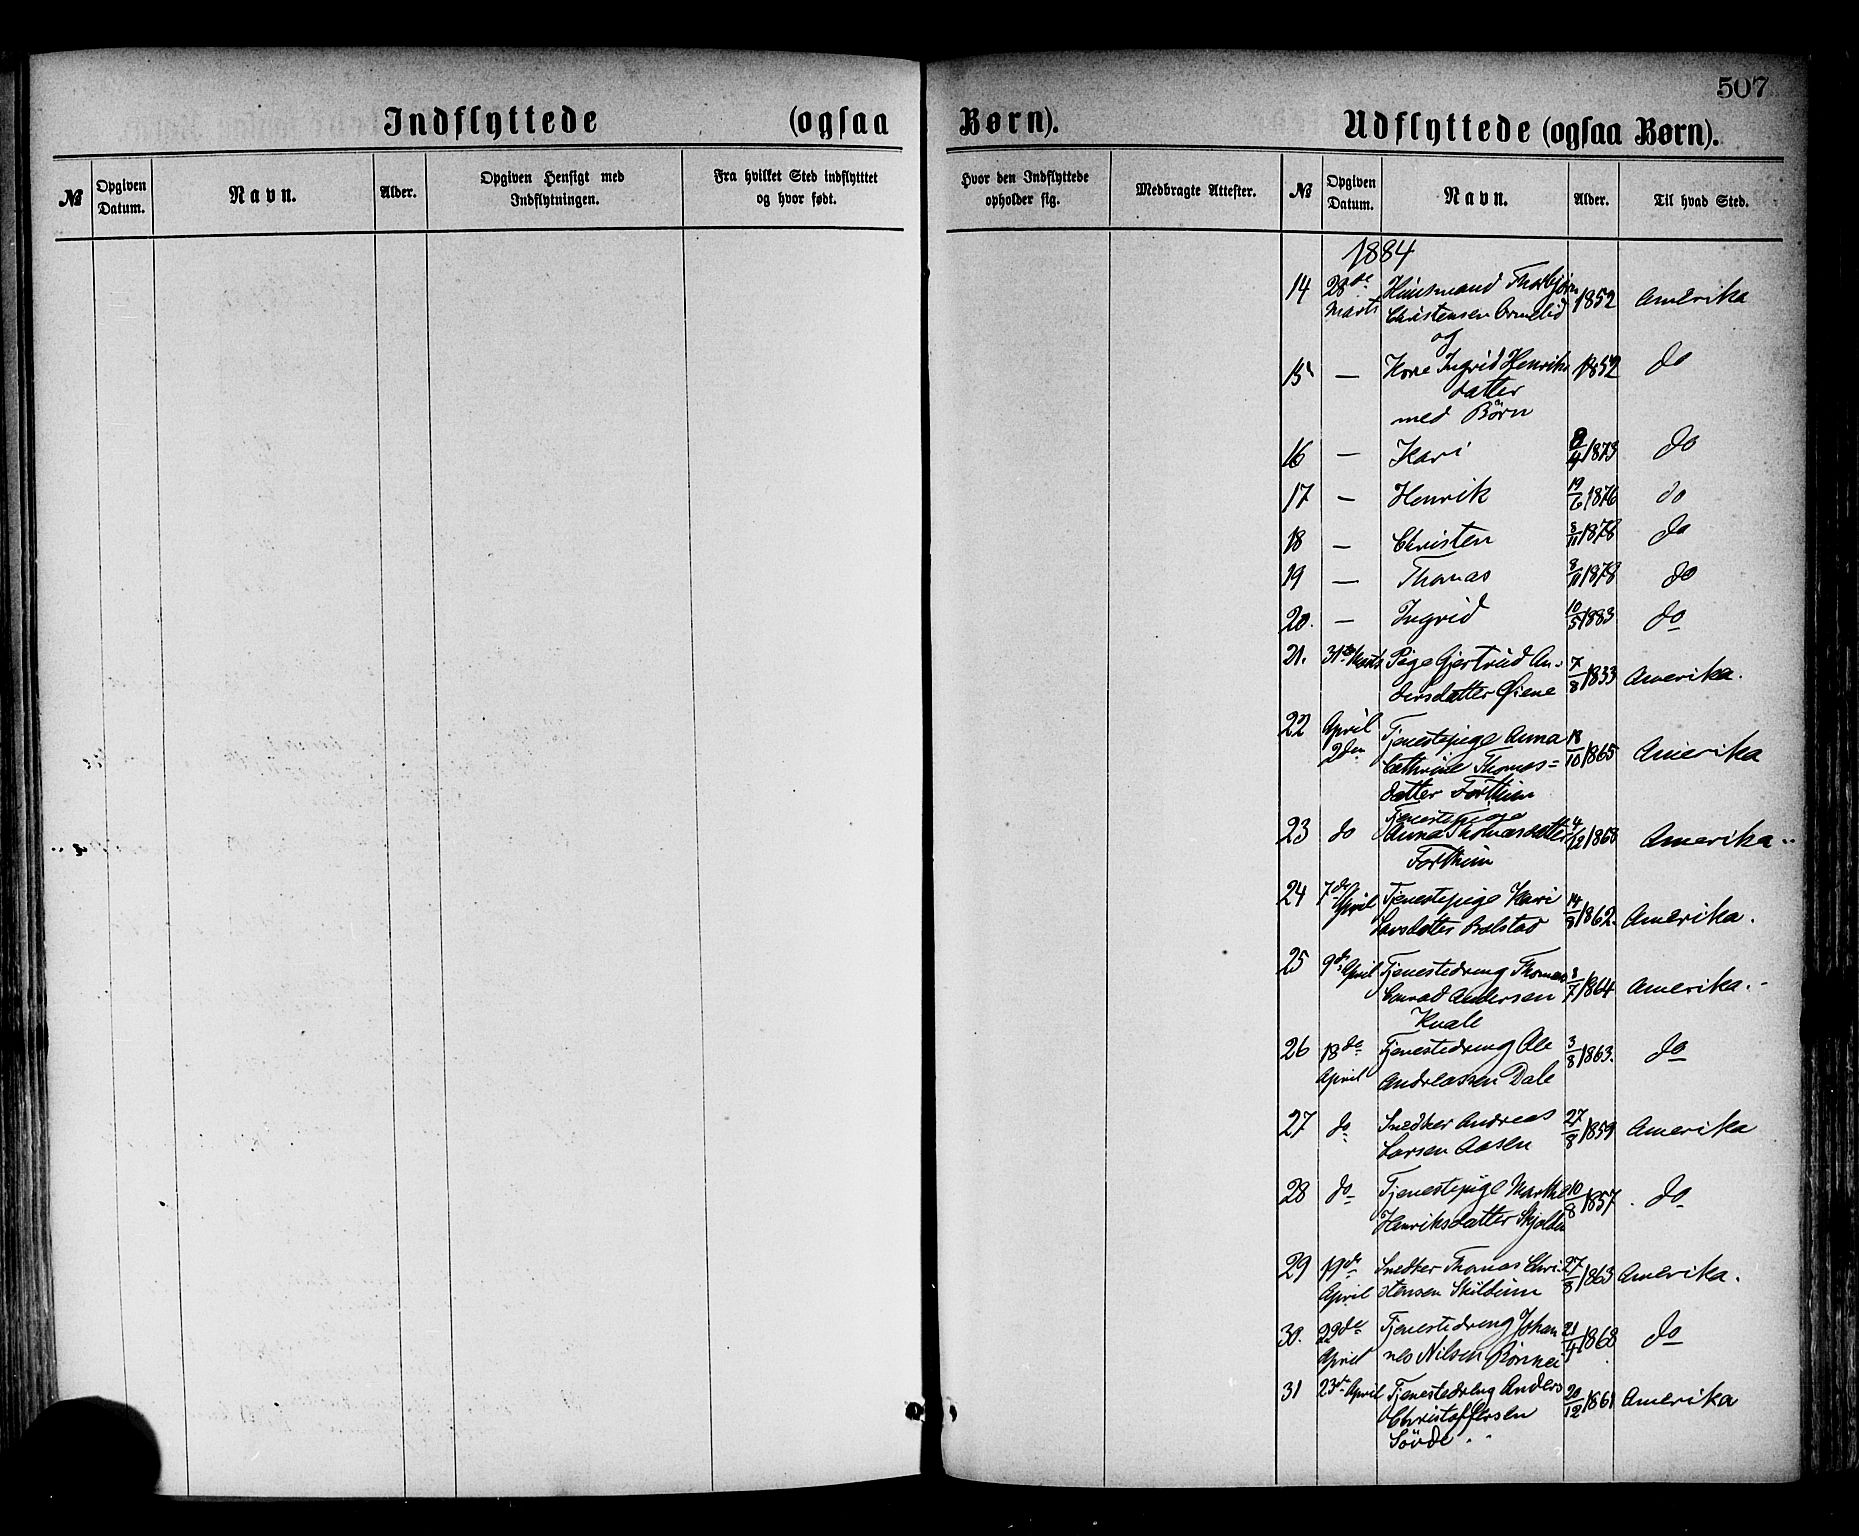 507
Indflyttede (ogsaa Børn).
Udflyttede (ogsaa Børn).
№ Opgiven Datum. Navn. Alder. Opgiven Hensigt med Indflytningen. Fra hvilket Sted indflyttet og hvor født. Hvor den Indflyttede opholder sig. Medbragte Attester.
№ Opgiven Datum. Navn. Alder. Til hvad Sted.
1884
14 28de Huusmand Thorbjørn 1852 Amerika
Marts Christensen Ormelid
og
15 — Kone Ingrid Henriks 1852 do
datter
med Børn
16 — Kari 8/4 1873 do
17 — Henrik 19/6 1876 do
18 — Christen 8/11 1878 do
19 — Thomas 8/11 1878 do
20. — Ingrid 10/5 1883 do
21. 31te Marts Pige Gjertrud An- 7/8 1833 Amerika.
dersdatter Øiene
22 April Tjenestepige Anna 18/10 1865 Amerika
2den Cathrine Thomas=
datter Forthun
23 do Tjenestepige
Anna Thomasdatter 4/12 1868 Amerika
Forthun
24 7de April Tjenestepige Kari 14/8 1862. Amerika.
Larsdatter Bolstad
25 9de April Tjenestedreng Thomas 8/7 1864 Amerika.
Conrad Andersen
Kvale
26 18de Tjenestedreng Ole 3/8 1863. do
April Andreassen Dale
27 do Snedker Andreas 27/8 1859 Amerika
Larsen Aasen
28 do Tjenestepige Marthe 10/8 1857. do
Henriksdatter Skjolden
29 19de Snedker Thomas Chri- 27/8 1863 Amerika.
April stensen Skildum
30. 22de Tjenestedreng Johan 21/4 1868 do
April nes Nilsen
31 23de April Tjenestedreng Anders 20/12 1861 Amerika
Christoffersen
Søvde